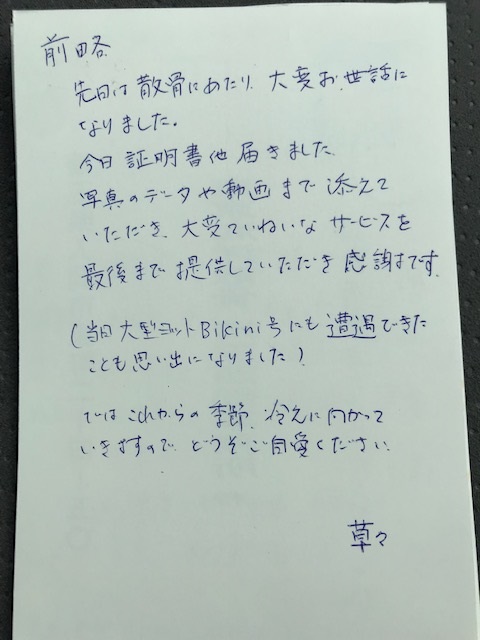 前略
先日は散骨にあたり、大変お世話に
なりました。
今日証明書他届きました。
写真のデータや動画まで添えて
いただき、大変ていねいなサービスを
最後まで提供していただき感謝です。
(当日大型ヨットBikini号にも遭遇できた
ことも思い出になりました)
ではこれからの季節、冷えに向かって
いきますので、どうぞご自愛ください。
草々